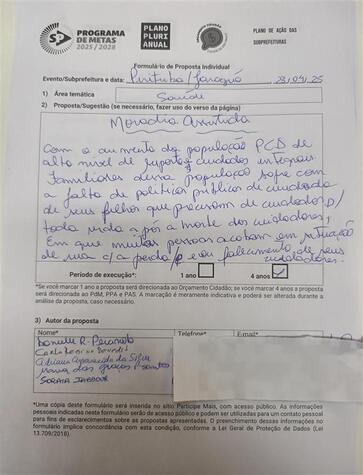 PROGRAMA
DE METAS
2025 / 2028
PLANO
PLURI
ANUAL
PLANO DE AÇÃO DAS
SUBPREFEITURAS
Formulário de Proposta Individual
Evento/Subprefeitura e data: Pirituba/Jaraguá 23/04/25
1) Área temática
Saúde
2) Proposta/Sugestão (se necessário, fazer uso do verso da página)
Moradia Assistida
Com o aumento da população PCD de
alto nível de suporte e cuidados integrais
Familiares dessa população sofre com
a falta de políticas públicas de cuidado
de seus filhos que precisam de cuidador p/
toda vida e após a morte dos cuidadores,
Em que muitas pessoas acabam em situação
de rua c/a perda/ falecimento de seus
cuidadores.
Período de execução*: 1 ano 4 anos ✓
*Se você marcar 1 ano a proposta será direcionada ao Orçamento Cidadão; se você marcar 4 anos a proposta
será direcionada ao PdM, PPA e PAS. A marcação é meramente indicativa e poderá ser alterada durante a
análise da proposta, caso necessário.
3) Autor da proposta
Nome* Telefone* E-mail*
R.
Adriana Aparecida da Silva
Maria das Graças Santos
SORAIA
*Uma cópia deste formulário será inserida no site Participe Mais, com acesso público. As informações
pessoais indicadas neste formulário serão de acesso público e podem ser utilizadas para um contato pessoal
para fins de esclarecimentos sobre as propostas apresentadas. O preenchimento dessas informações no
formulário implica concordância com esta condição, conforme a Lei Geral de Proteção de Dados (Lei
13.709/2018).